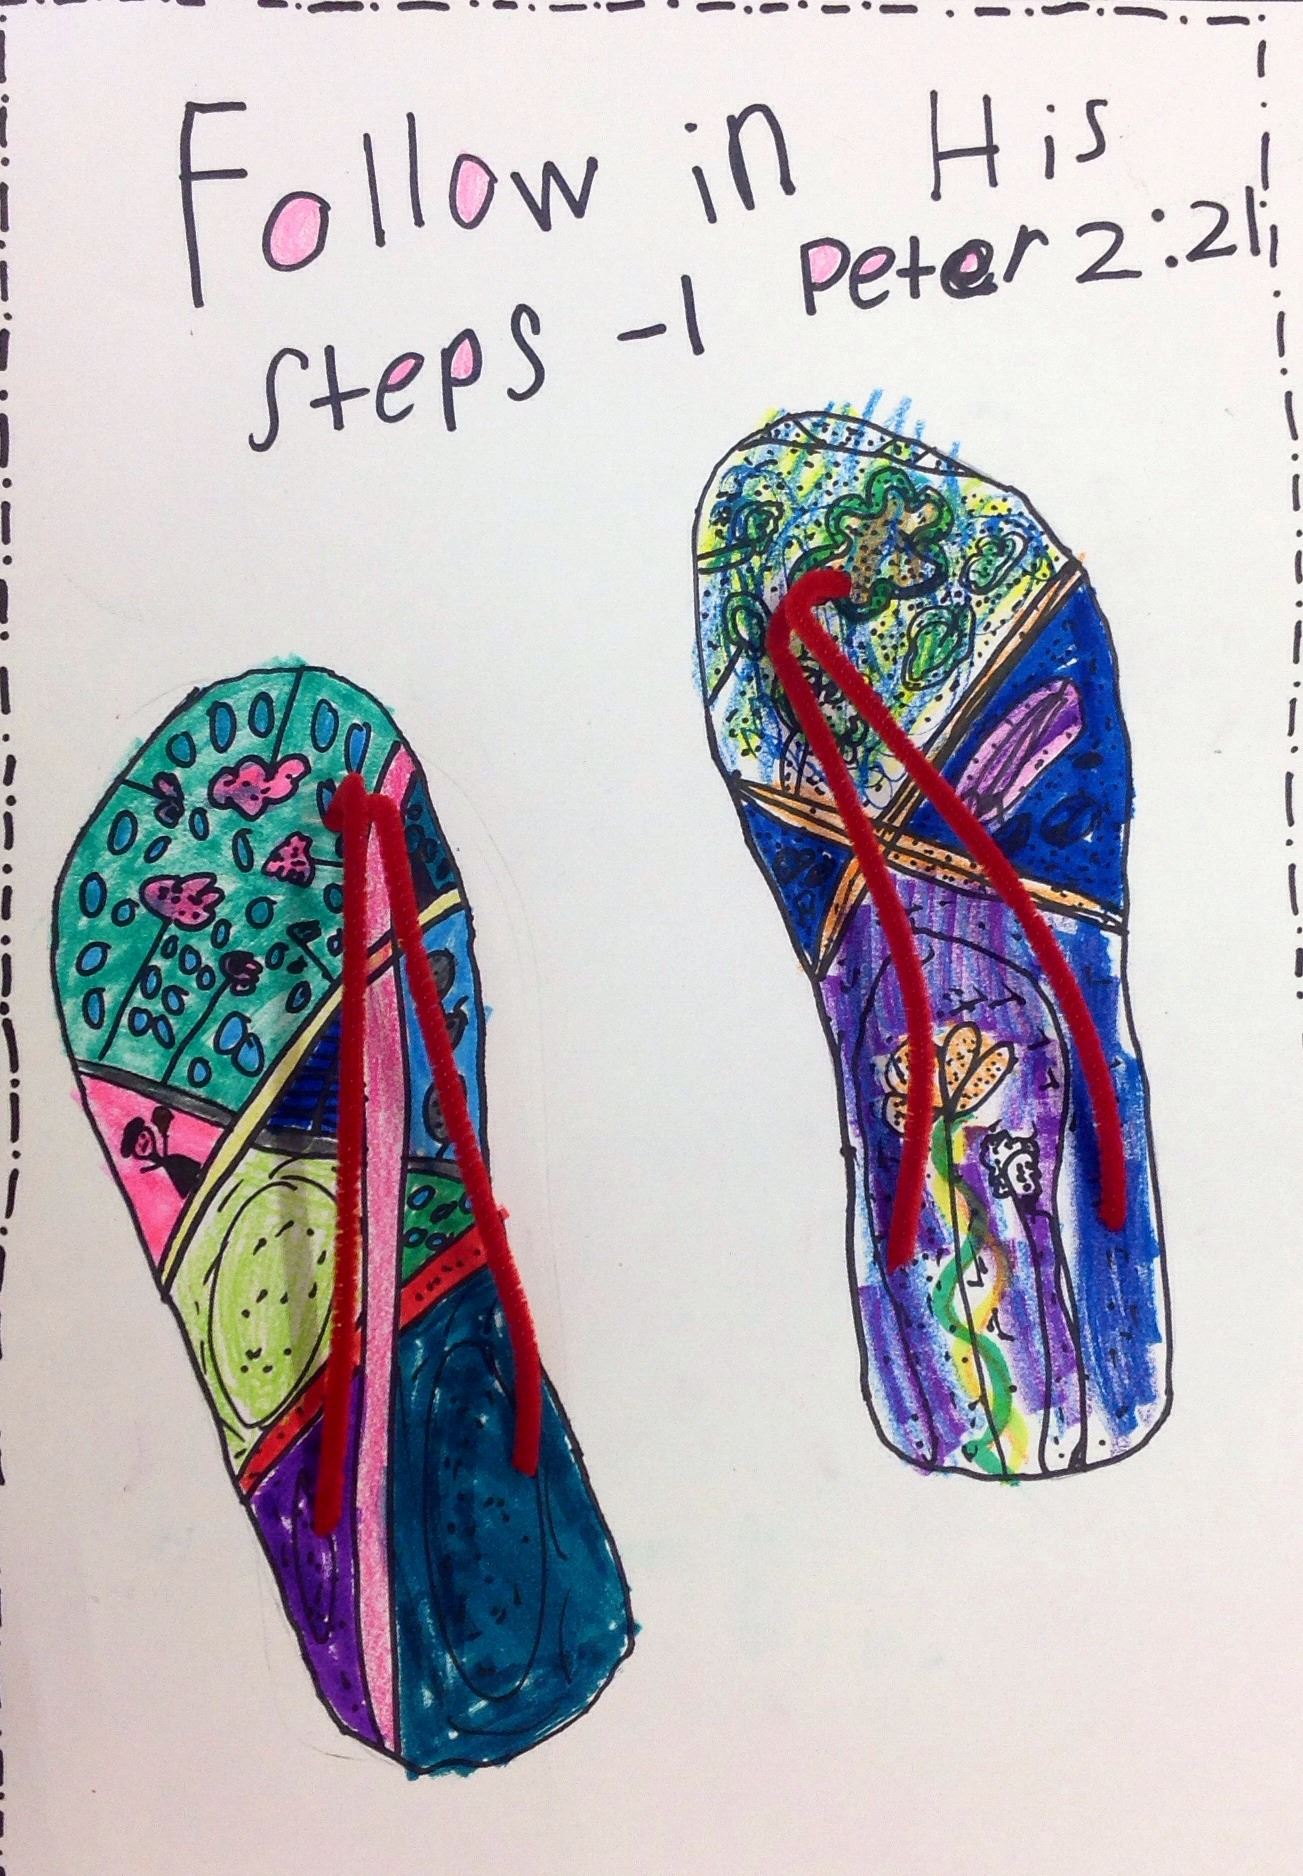 Follow in His
steps - 1 Peter 2:21